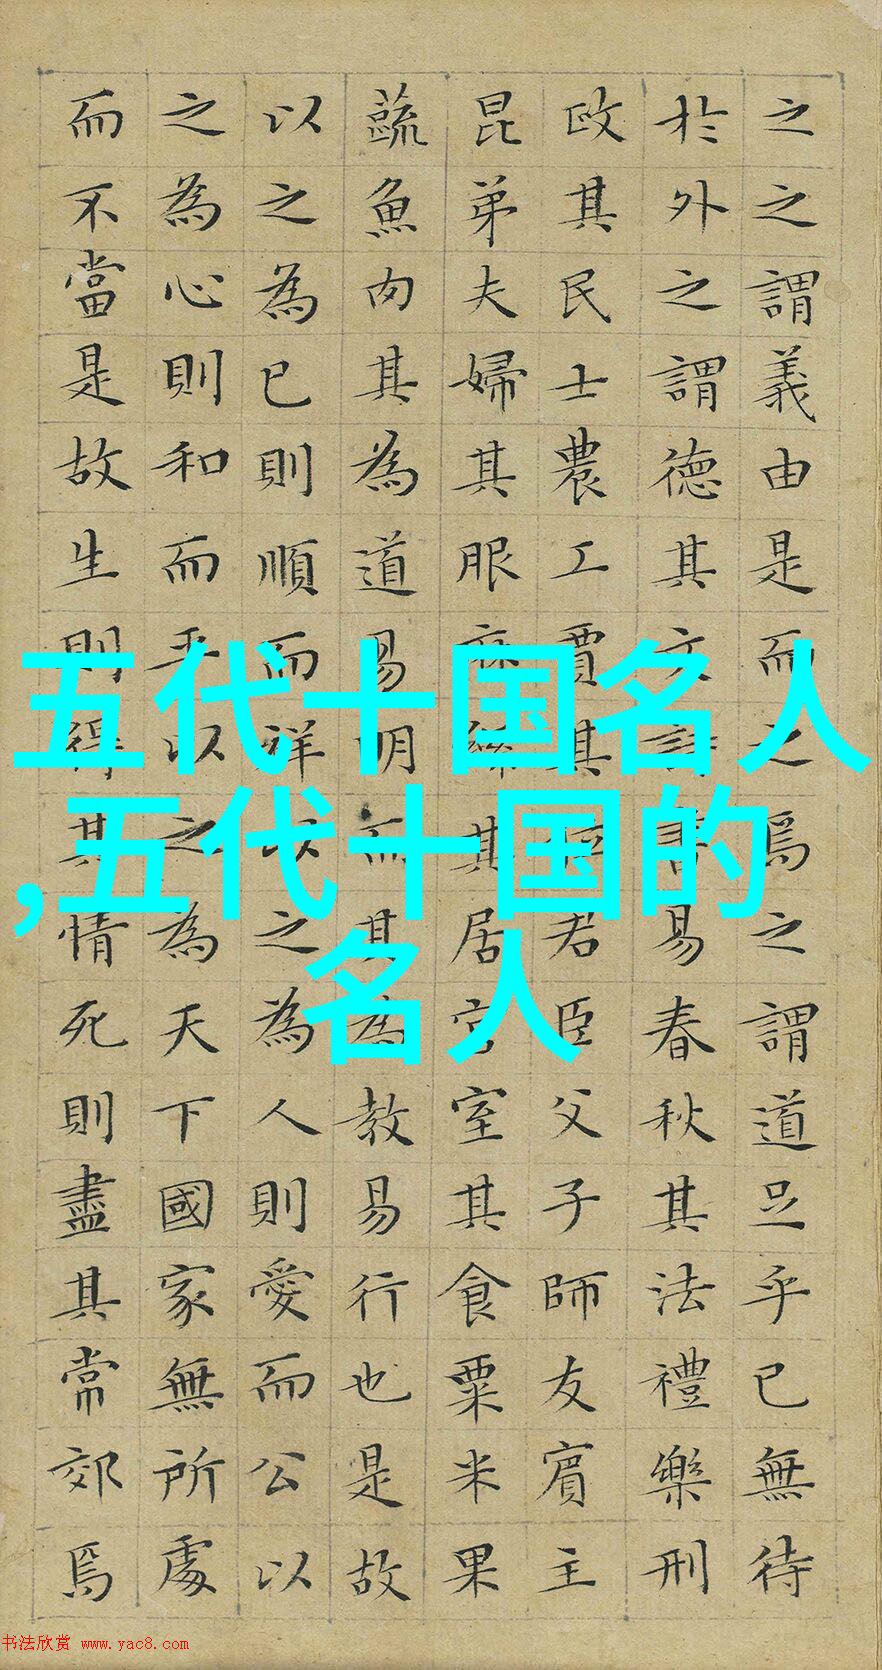 之之謂義由是而之焉之謂道足乎已無待
於外之謂德其文詩書易春秋其法禮樂刑
政其民士農工賈其位君臣父子師友賓主
昆弟夫婦其服麻絲其居宮室其食粟米果
蔬魚肉其為道易明而其為教易行也是故
以之為已則順而祥以之為人則愛而公以
之為心則和而平以之為天下國家無所處
而不當是故生則得其情死則盡其常郊焉
五代十国名人
,五代十国的
名人
书法欣赏 www.yac8.com